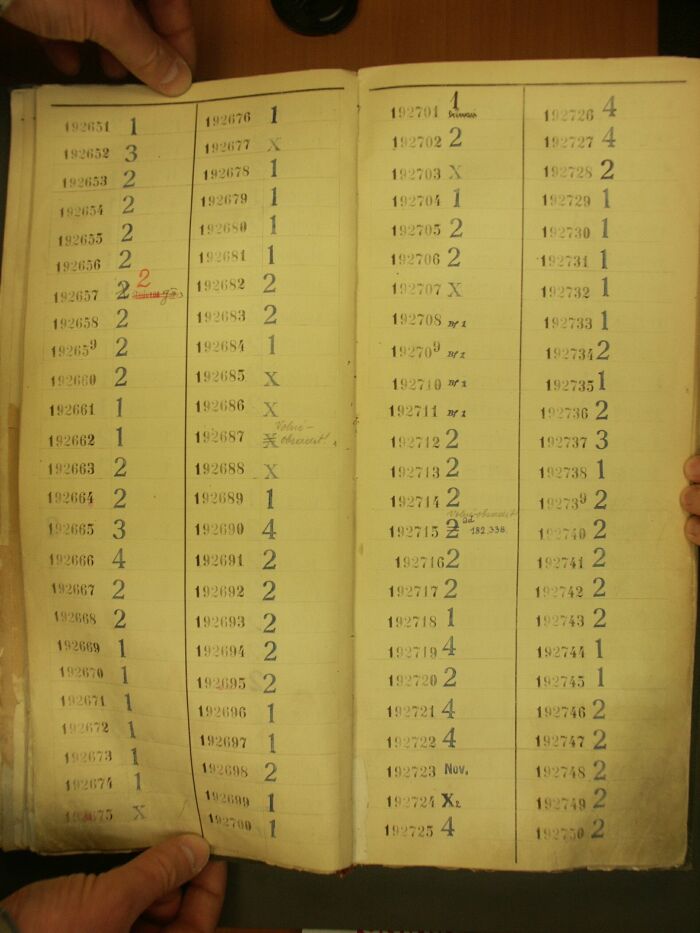 192651 1
192652 3
192653 2
192654 2
192655 2
192656 2
2
192657 2
192658 2
192659 2
192660 2
192661 1
192662 1
192663 2
192664 2
192665 3
192666 4
192667 2
192668 2
192669 1
192670 1
192671 1
192672 1
192673 1
192674 1
192675 X
192676 1
192677 X
192678 1
192679 1
192680 1
192681 1
192682 2
192683 2
192684 1
192685 X
192686 X
192687 X
192688 X
192689 1
192690 4
192691 2
192692 2
192693 2
192694 2
192695 2
192696 1
192697 1
192698 2
192699 1
192700 1
192701 1
192702 2
192703 X
192704 1
192705 2
192706 2
192707 X
192708
192709
192710
192711
192712 2
192713 2
192714 2
192715 2 ad 182.338
192716 2
192717 2
192718 1
192719 4
192720 2
192721 4
192722 4
192723 Nov.
192724 X2
192725 4
192726 4
192727 4
192728 2
192729 1
192730 1
192731 1
192732 1
192733 1
192734 2
192735 1
192736 2
192737 3
192738 1
192739 2
192740 2
192741 2
192742 2
192743 2
192744 1
192745 1
192746 2
192747 2
192748 2
192749 2
192750 2